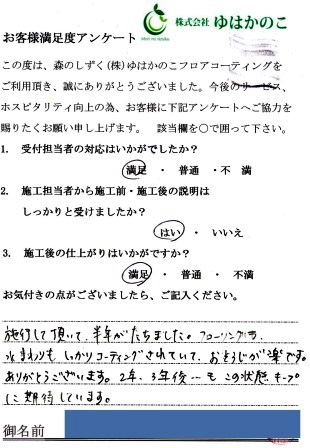 株式会社 ゆはかのこ
Mori no sizuku
お客様満足度アンケート
この度は、森のしずく(株)ゆはかのこフロアコーティングを
ご利用頂き、誠にありがとうございました。今後のサービス、
ホスピタリティ向上の為、お客様に下記アンケートへご協力を
賜りたくお願い申し上げます。 該当欄を○で囲って下さい。
1. 受付担当者の対応はいかがでしたか?
満足 ・ 普通 ・不 満
2. 施工担当者から施工前・施工後の説明は
しっかりと受けましたか?
はい ・ いいえ
3. 施工後の仕上がりはいかがですか?
満足 ・ 普通 ・ 不満
お気付きの点がございましたら、ご記入ください。
施行して頂いて、半年がたちました。フローリングも
水まわりも しっかりコーティングされていて、おそうじが楽です。
ありがとうございます。2年、3年後…も この状態キープ
に期待しています。
御名前